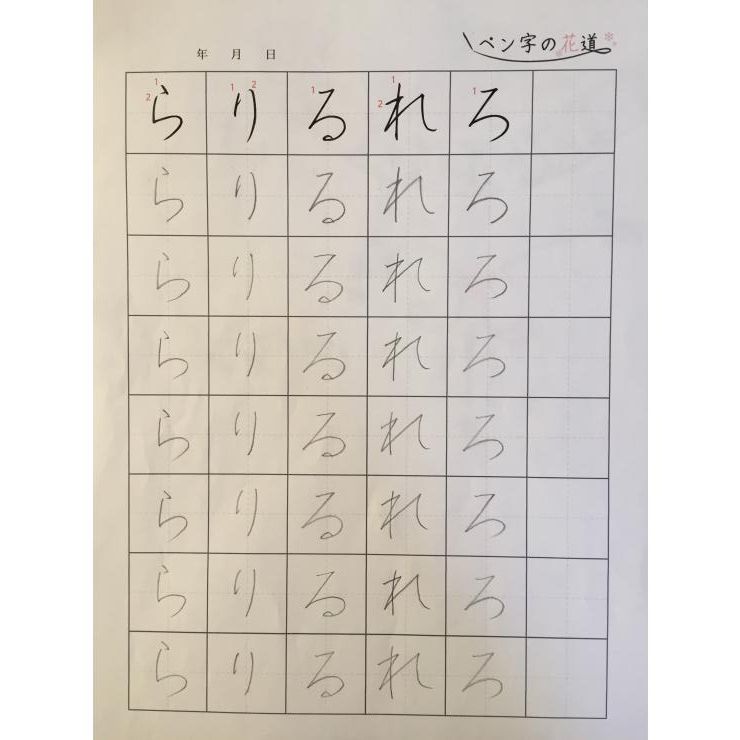 ペン字の花道
年 月 日
1 2 ら 1 2 り 1 る 1 2 れ 1 ろ
ら り る れ ろ
ら り る れ ろ
ら り る れ ろ
ら り る れ ろ
ら り る れ ろ
ら り る れ ろ
ら り る れ ろ